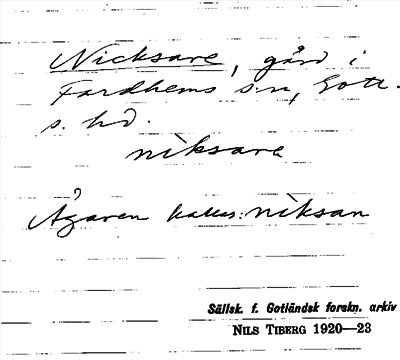 Nicksare, gård i
Fardhems s:n, Gotl.
s. hd.
nìksarε
Ägaren kallas: nìksan
Sällsk. f. Gotländsk forskn. arkiv
NILS TIBERG 1920—23